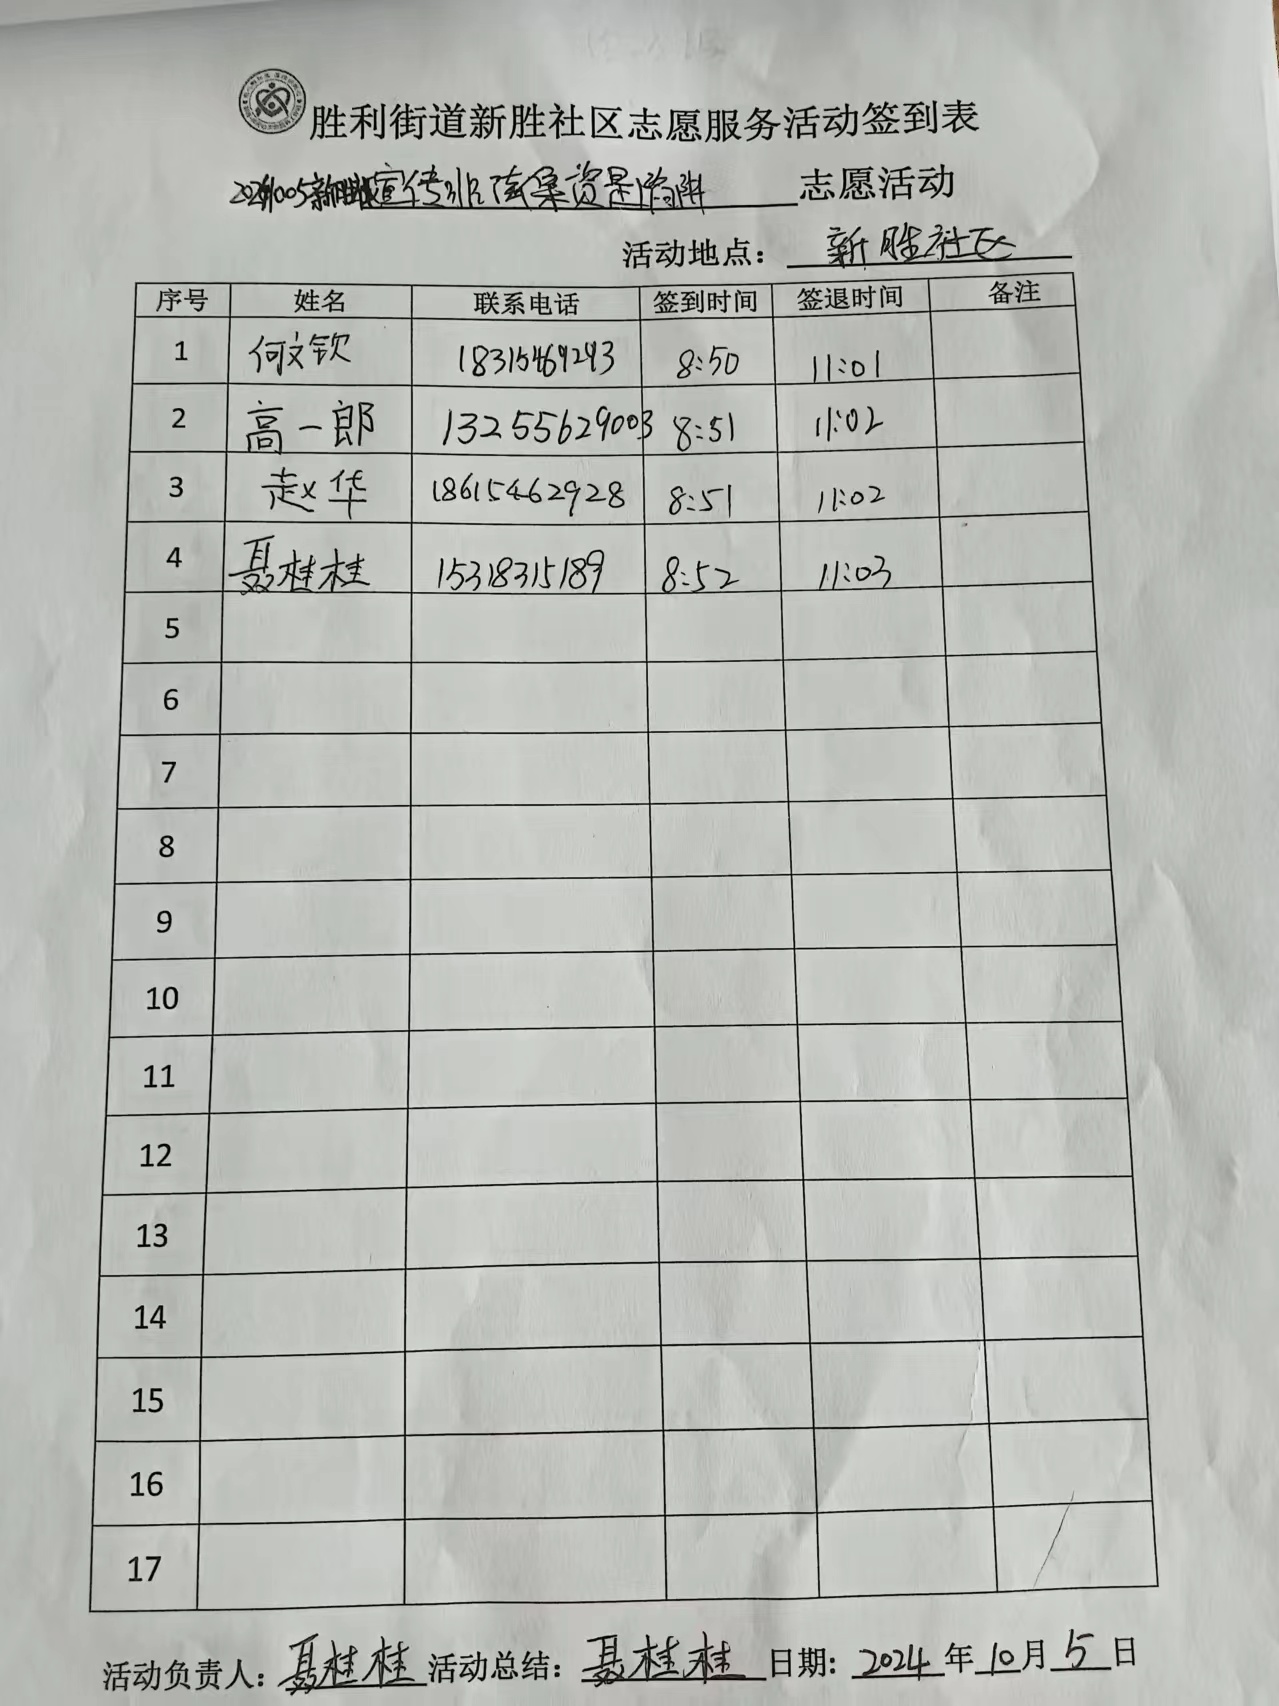 胜利街道新胜社区志愿服务活动签到表
20241005新胜社区宣传非法集资是陷阱 志愿活动
活动地点：新胜社区
序号 姓名 联系电话 签到时间 签退时间 备注
1 何文钦 18315469243 8:50 11:01
2 高一郎 13255629003 8:51 11:02
3 赵华 18615462928 8:51 11:02
4 聂桂桂 15318315189 8:52 11:03
5
6
7
8
9
10
11
12
13
14
15
16
17
活动负责人：聂桂桂 活动总结：聂桂桂 日期：2024年10月5日